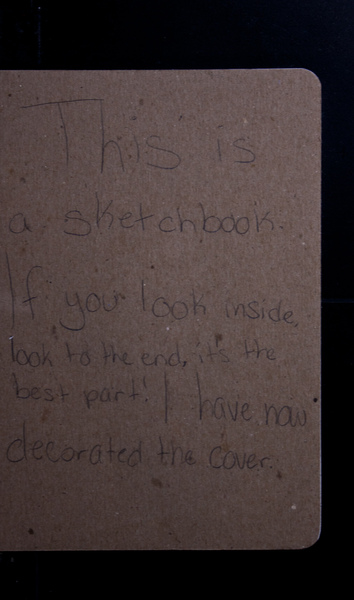 This is
a sketchbook.
If your look inside,
look to the end, it's the
best part! I have now
decorated the cover.